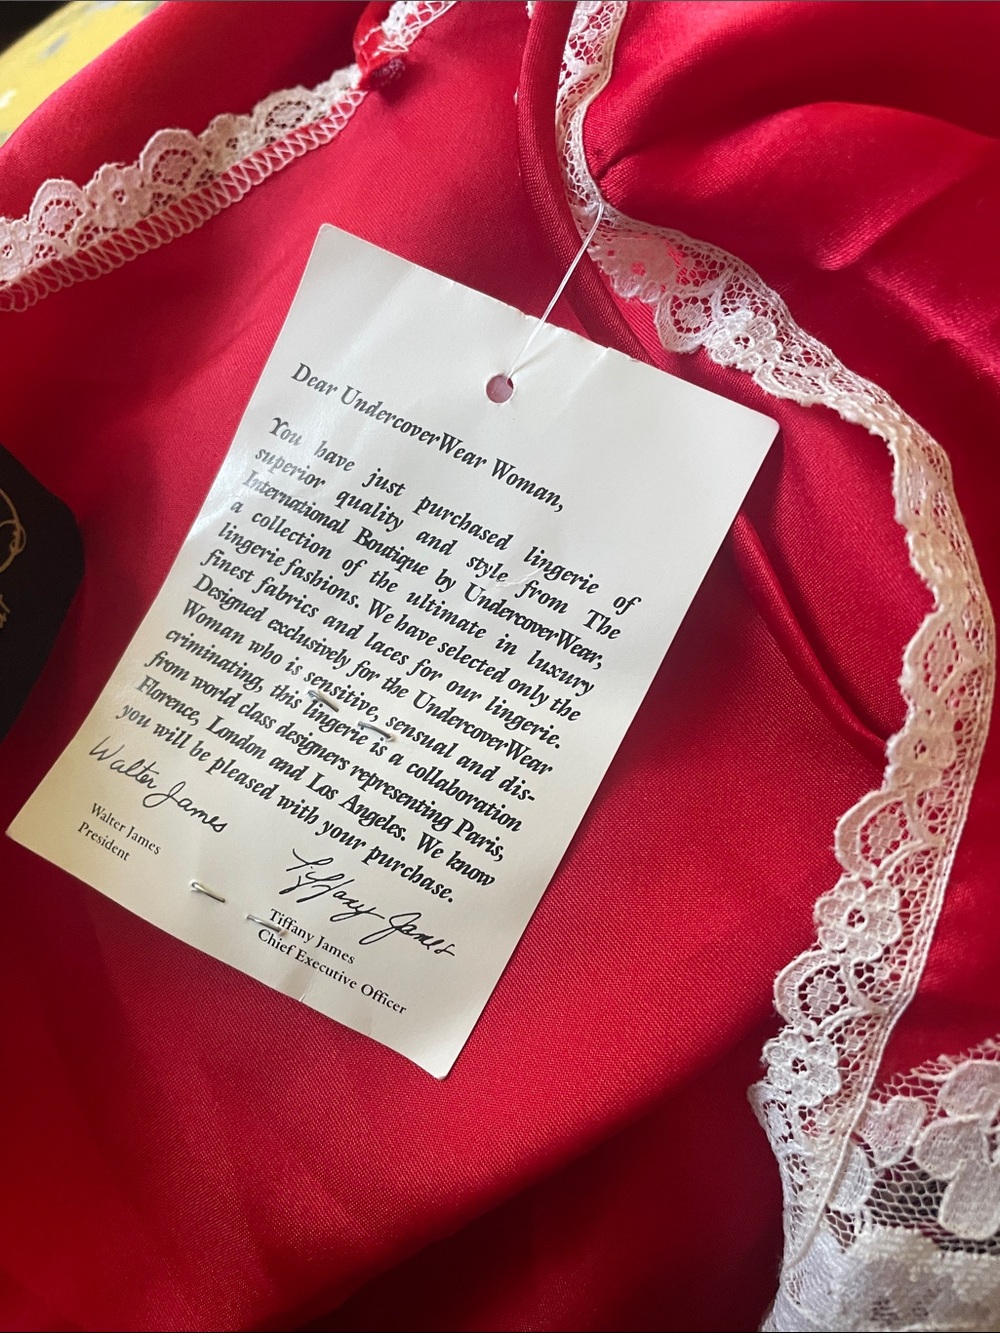 Dear UndercoverWear Woman,
You have just purchased lingerie of
superior quality and style from The
International Boutique by UndercoverWear,
a collection of the ultimate in luxury
lingerie fashions. We have selected only the
finest fabrics and laces for our lingerie.
Designed exclusively for the UndercoverWear
Woman who is sensitive, sensual and dis-
criminating, this lingerie is a collaboration
from world class designers representing Paris,
Florence, London and Los Angeles. We know
you will be pleased with your purchase.
Walter James
Walter James
President
Tiffany James
Tiffany James
Chief Executive Officer